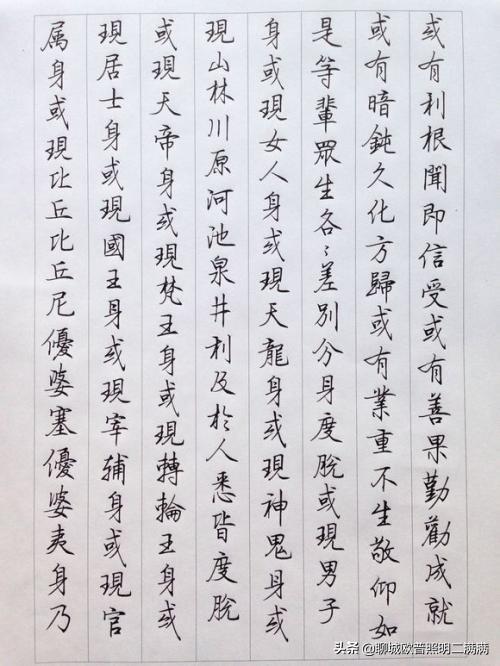 或有利根聞即信受或有善果勤勸成就
或有暗鈍久化方歸或有業重不生敬仰如
是等輩眾生各〻差別分身度脫或現男子
身或現女人身或現天龍身或現神鬼身或
現山林川原河池泉井利及於人悉皆度脫
或現天帝身或現梵王身或現轉輪王身或
現居士身或現國王身或現宰辅身或現官
属身或現比丘比丘尼優婆塞優婆夷身乃
头条@聊城欧普照明二满满